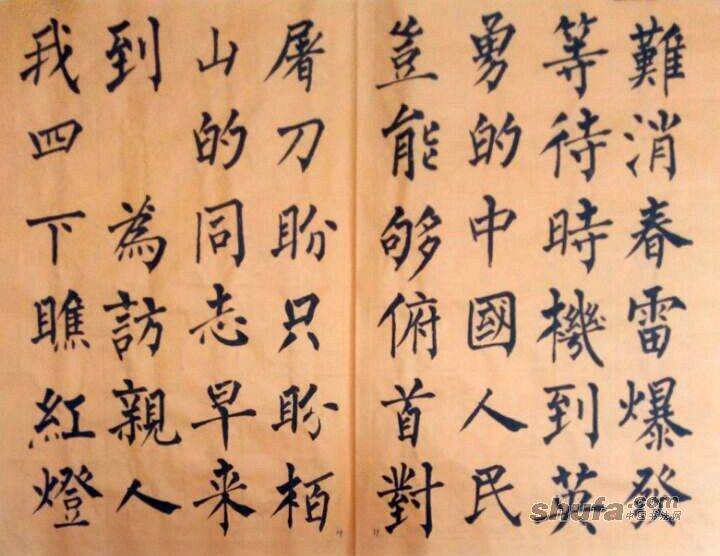 難消春雷爆發
等待時機到英
勇的中國人民
豈能够俯首對
屠刀盼只盼栢
山的同志早来
到 為訪親人
我四下瞧紅燈
shufa.com
中国书法网